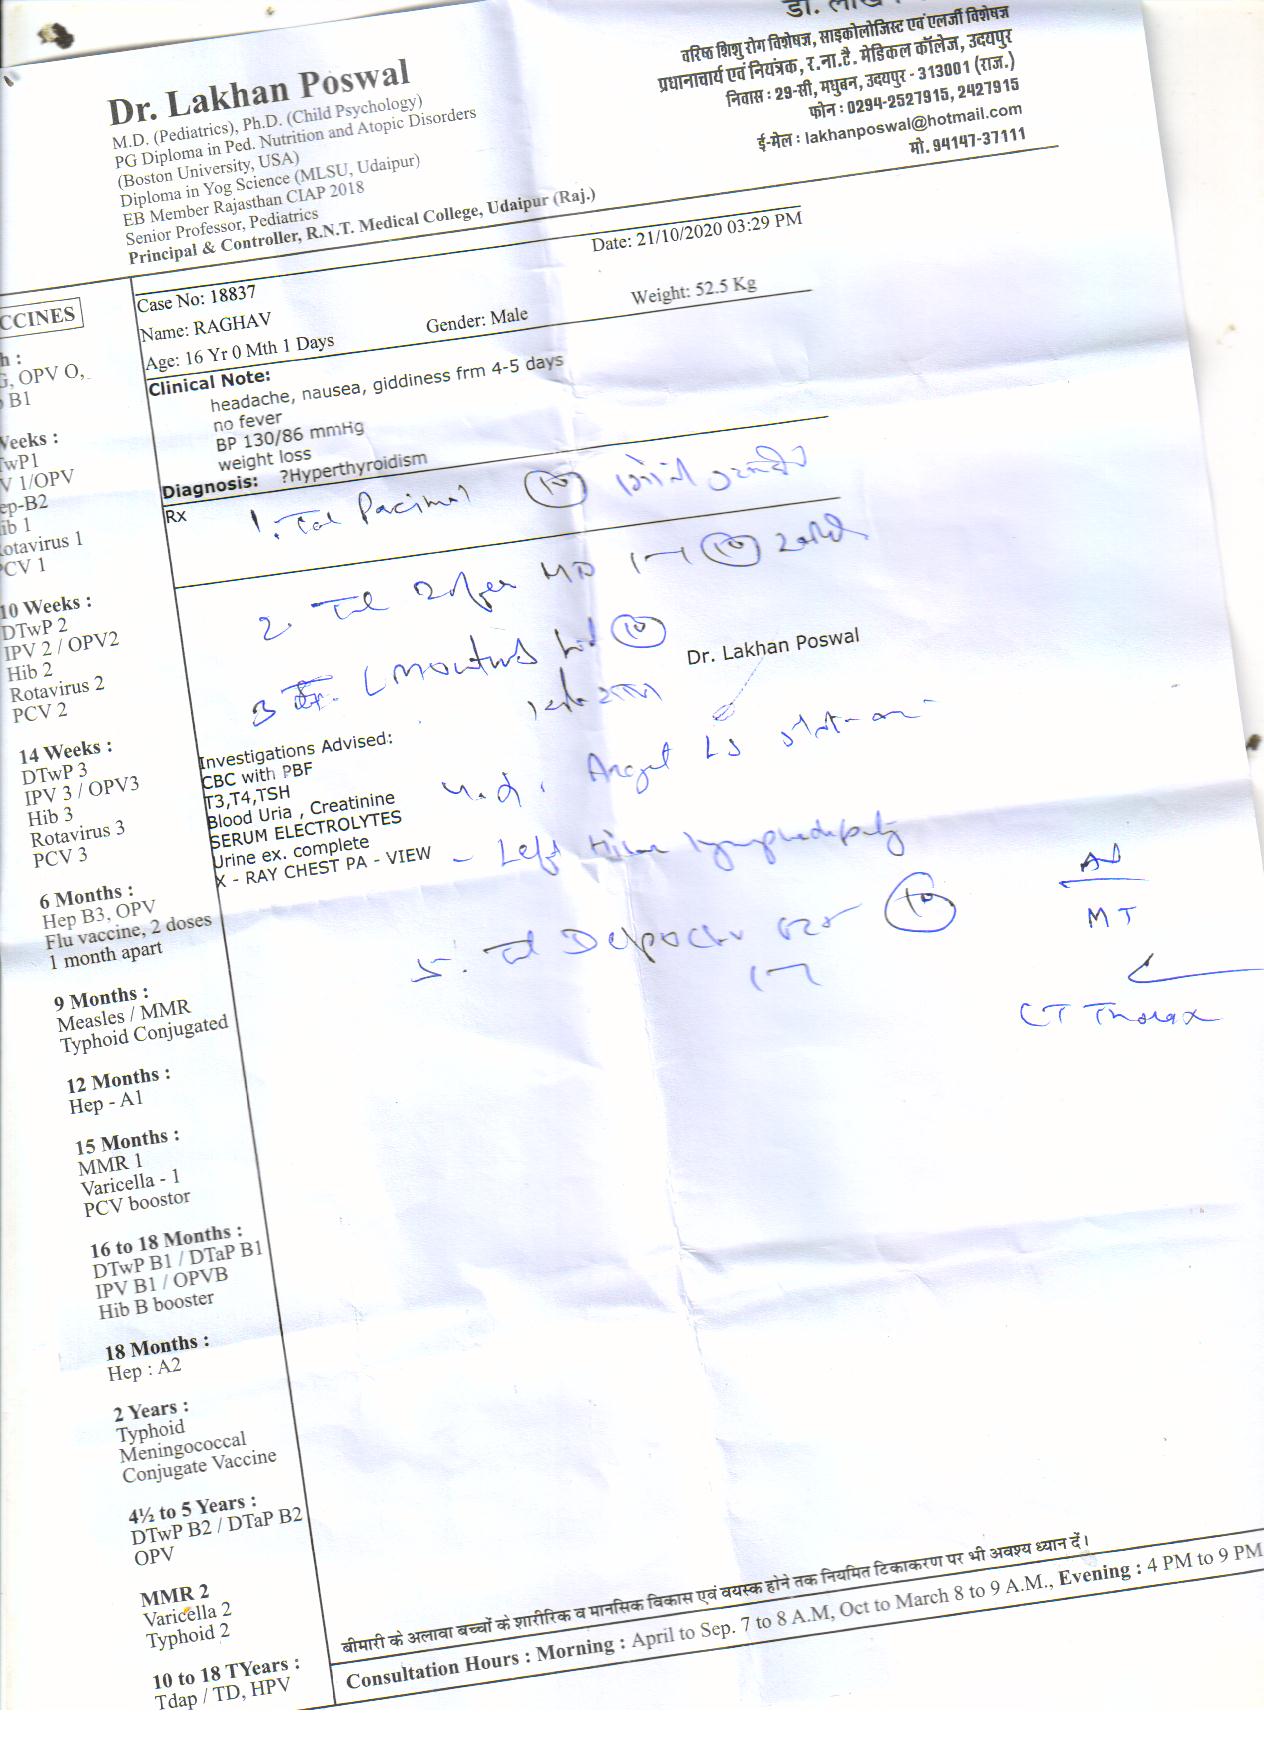 डॉ.
वरिष्ठ शिशु रोग विशेषज्ञ, साइकोलोजिस्ट एवं एलर्जी विशेषज्ञ
प्रधानाचार्य एवं नियंत्रक, र.ना.टै. मेडिकल कॉलेज, उदयपुर
निवास : 29-सी, मधुबन, उदयपुर - 313001 (राज.)
फोन : 0294-2527915, 2427915
ई-मेल : lakhanposwal@hotmail.com
मो. 94147-37111
Dr. Lakhan Poswal
M.D. (Pediatrics), Ph.D. (Child Psychology)
PG Diploma in Ped. Nutrition and Atopic Disorders
(Boston University, USA)
Diploma in Yog Science (MLSU, Udaipur)
EB Member Rajasthan CIAP 2018
Senior Professor, Pediatrics
Principal & Controller, R.N.T. Medical College, Udaipur (Raj.)
Date: 21/10/2020 03:29 PM
Case No: 18837
Name: RAGHAV
Age: 16 Yr 0 Mth 1 Days Gender: Male Weight: 52.5 Kg
Clinical Note:
headache, nausea, giddiness frm 4-5 days
no fever
BP 130/86 mmHg
weight loss
Diagnosis: ?Hyperthyroidism
Rx
1. Tab Pacimol 10
2. Tab MD 10
3 10
Dr. Lakhan Poswal
Investigations Advised:
CBC with PBF
T3,T4,TSH
Blood Uria , Creatinine
SERUM ELECTROLYTES
Urine ex. complete
X - RAY CHEST PA - VIEW
- Left Hilar lymphadenopathy
5. Tab 10
MT
CT Thorax
CCINES
h :
G, OPV O,
B1
Weeks :
TwP1
V 1/OPV
ep-B2
ib 1
otavirus 1
CV 1
10 Weeks :
DTwP 2
IPV 2 / OPV2
Hib 2
Rotavirus 2
PCV 2
14 Weeks :
DTwP 3
IPV 3 / OPV3
Hib 3
Rotavirus 3
PCV 3
6 Months :
Hep B3, OPV
Flu vaccine, 2 doses
1 month apart
9 Months :
Measles / MMR
Typhoid Conjugated
12 Months :
Hep - A1
15 Months :
MMR 1
Varicella - 1
PCV boostor
16 to 18 Months :
DTwP B1 / DTaP B1
IPV B1 / OPVB
Hib B booster
18 Months :
Hep : A2
2 Years :
Typhoid
Meningococcal
Conjugate Vaccine
4½ to 5 Years :
DTwP B2 / DTaP B2
OPV
MMR 2
Varicella 2
Typhoid 2
10 to 18 TYears :
Tdap / TD, HPV
बीमारी के अलावा बच्चों के शारीरिक व मानसिक विकास एवं वयस्क होने तक नियमित टिकाकरण पर भी अवश्य ध्यान दें।
Consultation Hours : Morning : April to Sep. 7 to 8 A.M, Oct to March 8 to 9 A.M., Evening : 4 PM to 9 PM